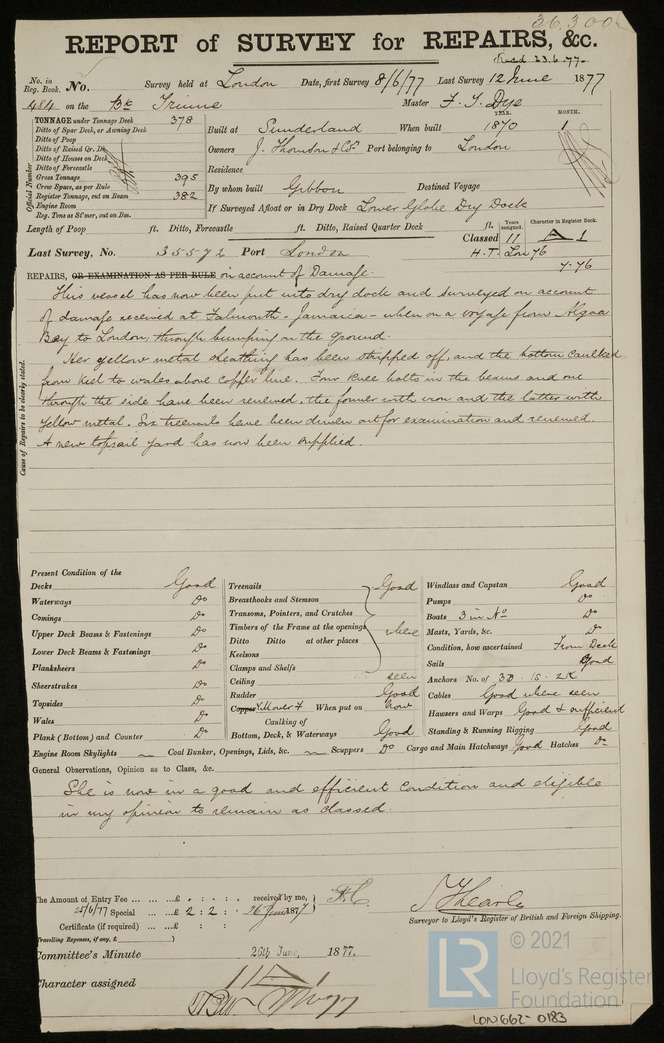 36,300
REPORT of SURVEY for REPAIRS, &c.
Recd 23.6.77.
No. in Reg. Book. No. Survey held at London Date, first Survey 8/6/77 Last Survey 12 June 1877
484 on the Bk Master F. T. Dye
TONNAGE under Tonnage Deck 378
Ditto of Spar Deck, or Awning Deck
Ditto of Poop
Ditto of Raised Qr. Dk.
Ditto of Houses on Deck
Ditto of Forecastle
Gross Tonnage 395
Crew Space, as per Rule
Register Tonnage, cut on Beam 382
Engine Room
Reg. Tons as St'mer, cut on Bm.
Official Number
YEAR. MONTH.
Built at Sunderland When built 1870 1
Owners J. Thomson & Co. Port belonging to London
Residence
By whom built Gibbon Destined Voyage
If Surveyed Afloat or in Dry Dock Lower Globe Dry Dock
Length of Poop ft. Ditto, Forecastle ft. Ditto, Raised Quarter Deck ft.
Years assigned. Character in Register Book.
Classed 11 A 1
Last Survey, No. 35572 Port London
H.T. Lon 76
7.76
REPAIRS, OR EXAMINATION AS PER RULE on account of Damage.
Cause of Repairs to be clearly stated.
This vessel has now been put into dry dock and surveyed on account
of damage received at Falmouth - Jamaica - when on a voyage from Algoa
Bay to London, through bumping on the ground.
Her yellow metal sheathing has been stripped off, and the bottom caulked
from keel to wales above Copper line. Four Knee bolts in the beams and one
through the side have been renewed, the former with iron and the latter with
yellow metal. Six treenails have been driven out for examination and renewed.
A new topsail yard has now been supplied.
Present Condition of the
Decks Good
Waterways Do
Comings Do
Upper Deck Beams & Fastenings Do
Lower Deck Beams & Fastenings Do
Planksheirs Do
Sheerstrakes Do
Topsides Do
Wales Do
Plank (Bottom) and Counter Do
Treenails Good
Breasthooks and Stemson
Transoms, Pointers, and Crutches
Timbers of the Frame at the openings where
Ditto Ditto at other places
Keelsons
Clamps and Shelfs
Ceiling seen
Rudder Good
Copper When put on now
Caulking of
Bottom, Deck, & Waterways Good
Windlass and Capstan Good
Pumps Do
Boats 3 in No Do
Masts, Yards, &c. Do
Condition, how ascertained From Deck
Sails Good
Anchors No. of 3B. 1S. 2K
Cables Good where seen
Hawsers and Warps Good & sufficient
Standing & Running Rigging Good
Engine Room Skylights Coal Bunker, Openings, Lids, &c. Scuppers Do Cargo and Main Hatchways Good Hatches Do
General Observations, Opinion as to Class, &c.
She is now in a good and efficient condition and eligible
in my opinion to remain as classed.
The Amount of Entry Fee ... ... £ : : received by me,
25/6/77 Special ... ... £ 2 : 2 : 26 June 1877
Certificate (if required) ... £ : :
Travelling Expenses, if any, £
Surveyor to Lloyd's Register of British and Foreign Shipping.
Committee's Minute 26th June, 1877.
Character assigned 11 A 1
LR
© 2021
Lloyd's Register
Foundation
LON662-0183